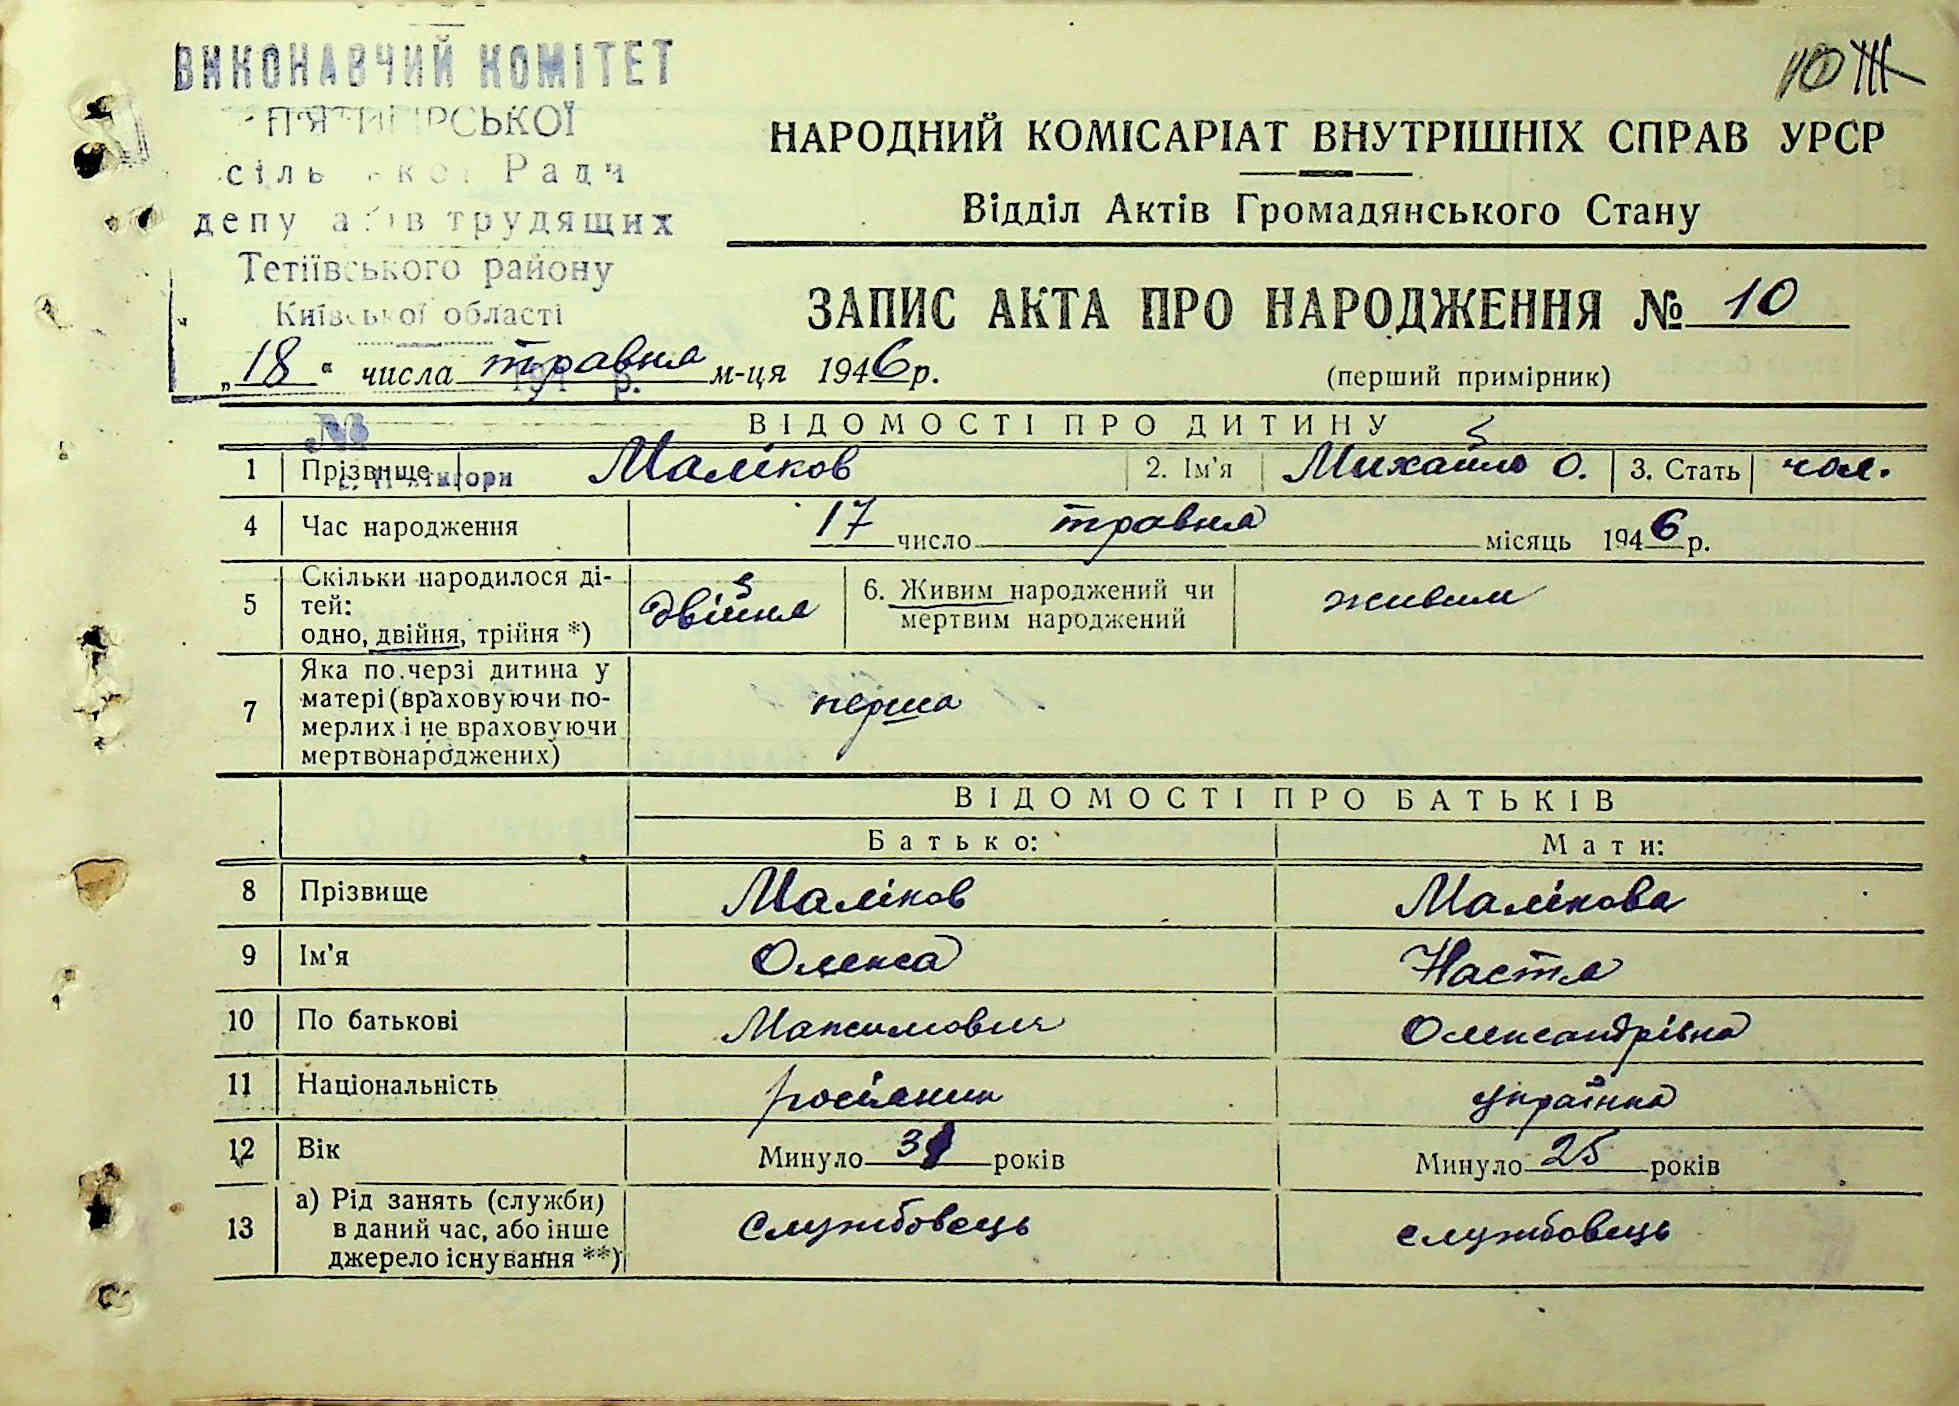 ВИКОНАВЧИЙ КОМІТЕТ
10 Ж
П'ЯТИГІРСЬКОЇ
сільської Ради
депутатів трудящих
Тетіївського району
Київської області
НАРОДНИЙ КОМІСАРІАТ ВНУТРІШНІХ СПРАВ УРСР
Відділ Актів Громадянського Стану
ЗАПИС АКТА ПРО НАРОДЖЕННЯ № 10
(перший примірник)
„18“ числа травня м-ця 1946 р.
194 р.
№
ВІДОМОСТІ ПРО ДИТИНУ
1 Прізвище Маліков 2. Ім'я Михайло О. 3. Стать чол.
с. П'ятигори
4 Час народження 17 число травня місяць 1946 р.
5 Скільки народилося ді-
тей:
одно, двійня, трійня *) двійня
6. Живим народжений чи
мертвим народжений живим
7 Яка по черзі дитина у
матері (враховуючи по-
мерлих і не враховуючи
мертвонароджених) перша
ВІДОМОСТІ ПРО БАТЬКІВ
Батько: Мати:
8 Прізвище Маліков Малікова
9 Ім'я Олекса Настя
10 По батькові Максимович Олександрівна
11 Національність росіянин українка
12 Вік Минуло 31 років Минуло 25 років
13 а) Рід занять (служби)
в даний час, або інше
джерело існування **) службовець службовець